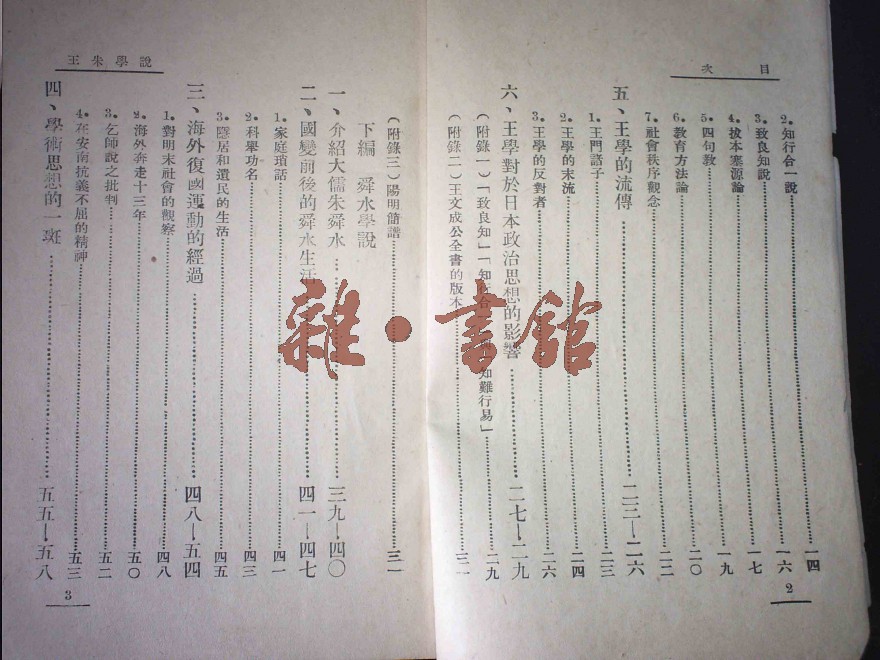 目次
2.知行合一說……一四
3.致良知說……一六
4.拔本塞源論……一七
5.四句教……一九
6.教育方法論……二〇
7.社會秩序觀念……二二
五、王學的流傳……二三—二六
1.王門諸子……二三
2.王學的末流……二四
3.王學的反對者……二六
六、王學對於日本政治思想的影響……二七—二九
(附錄一)「致良知」「知行合 知難行易」……二九
(附錄二)王文成公全書的版本……三一
2
王朱學說
(附錄三)陽明簡譜……三一
下編 舜水學說
一、介紹大儒朱舜水……三九—四〇
二、國變前後的舜水生活……四一—四七
1.家庭瑣話……四一
2.科舉功名……四三
3.隱居和遺民的生活……四五
三、海外復國運動的經過……四八—五四
1.對明末社會的觀察……四八
2.海外奔走十三年……五〇
3.乞師說之批判……五二
4.在安南抗義不屈的精神……五三
四、學術思想的一斑……五五—五八
3
雜·書館